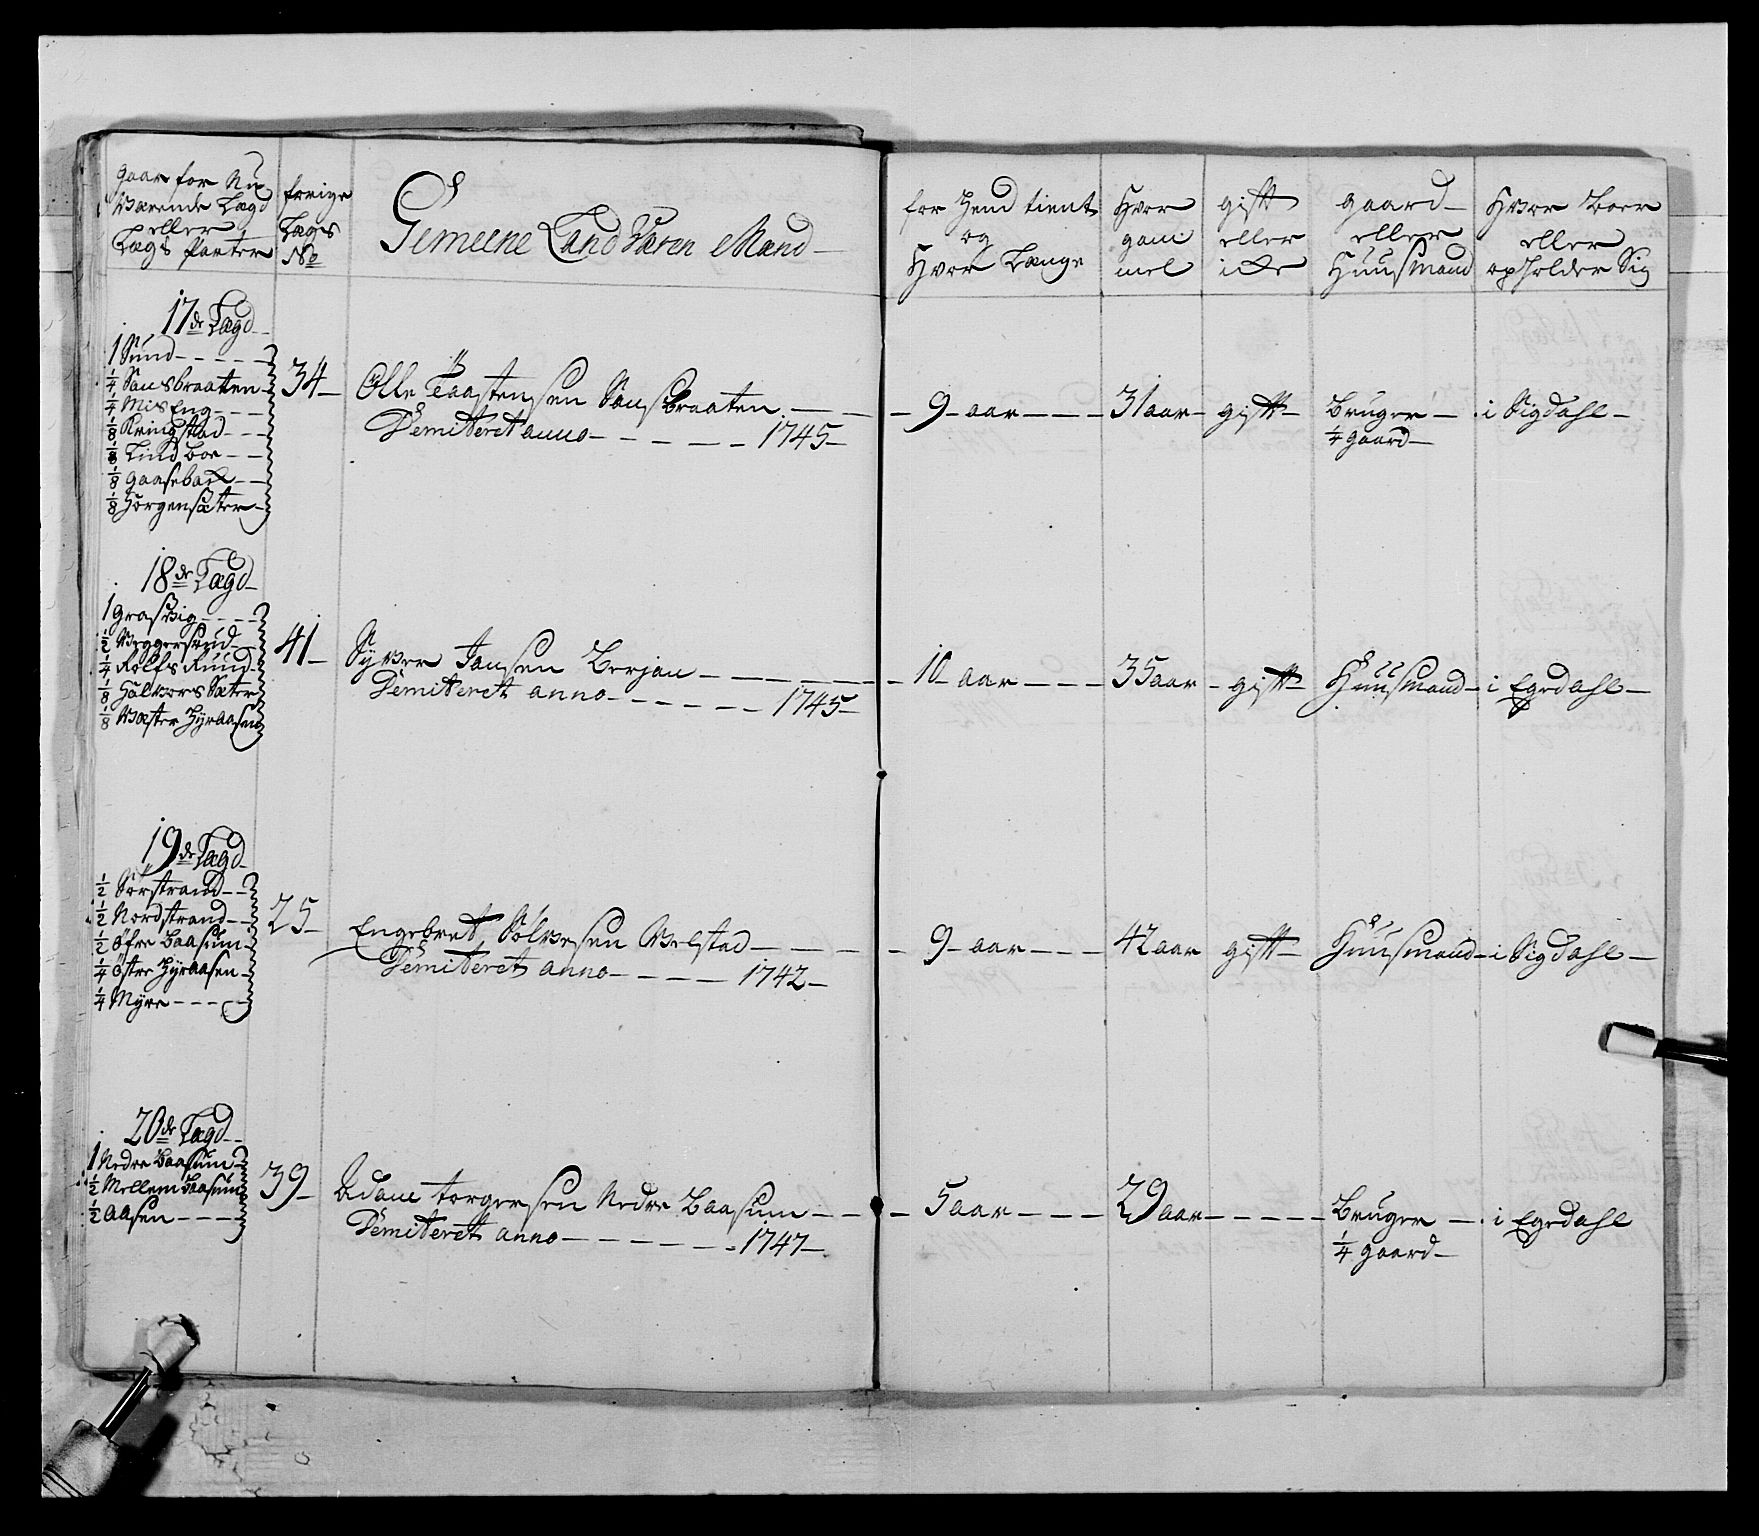 gaar for Nu
Værende Lægd
eller
Lægs Parter
forige
Lægs
No
Gemeene Land Væren Mænd
for hend tient
og
Hvor Længe
Hvor
gam
mel
gift
eller
icke
gaard
eller
Huusmand
Hvor Boer
eller
opholder Sig
17de Lægd
1 Sund
1/4 Sansbraaten
1/4 MisEng
1/8 Kringstad
1/8 Lindboe
1/8 Gaasebach
1/8 Hörgensæter
34
Olle Taastensen Sansbraaten
Demiteret anno 1745
9 aar
31 aar
gift
Bruger
1/4 gaard
i Sigdahl
18de Lægd
1 Grasvig
1/2 Veggersrud
1/4 Rolfs Ruud
1/8 Halvors Sæter
1/8 Væster Hyraasen
41
Syver Jansen Berjan
Demiteret anno 1745
10 aar
35 aar
gift
Huusmand
i Egedahl
19de Lægd
1/2 Sörstrand
1/2 Nordstrand
1/2 öfre Baasum
1/4 östre Hyraasen
1/4 Myre
25
Engebret Sölvesen Velstad
Demiteret anno 1742
9 aar
42 aar
gift
Huusmand
i Sigdahl
20de Lægd
1 Nedre Baasum
1/2 Mellem Baasum
1/2 Aasen
39
Adam torgersen Nedre Baasum
Demiteret anno 1747
5 aar
29 aar
Bruger
1/4 gaard
i Egedahl